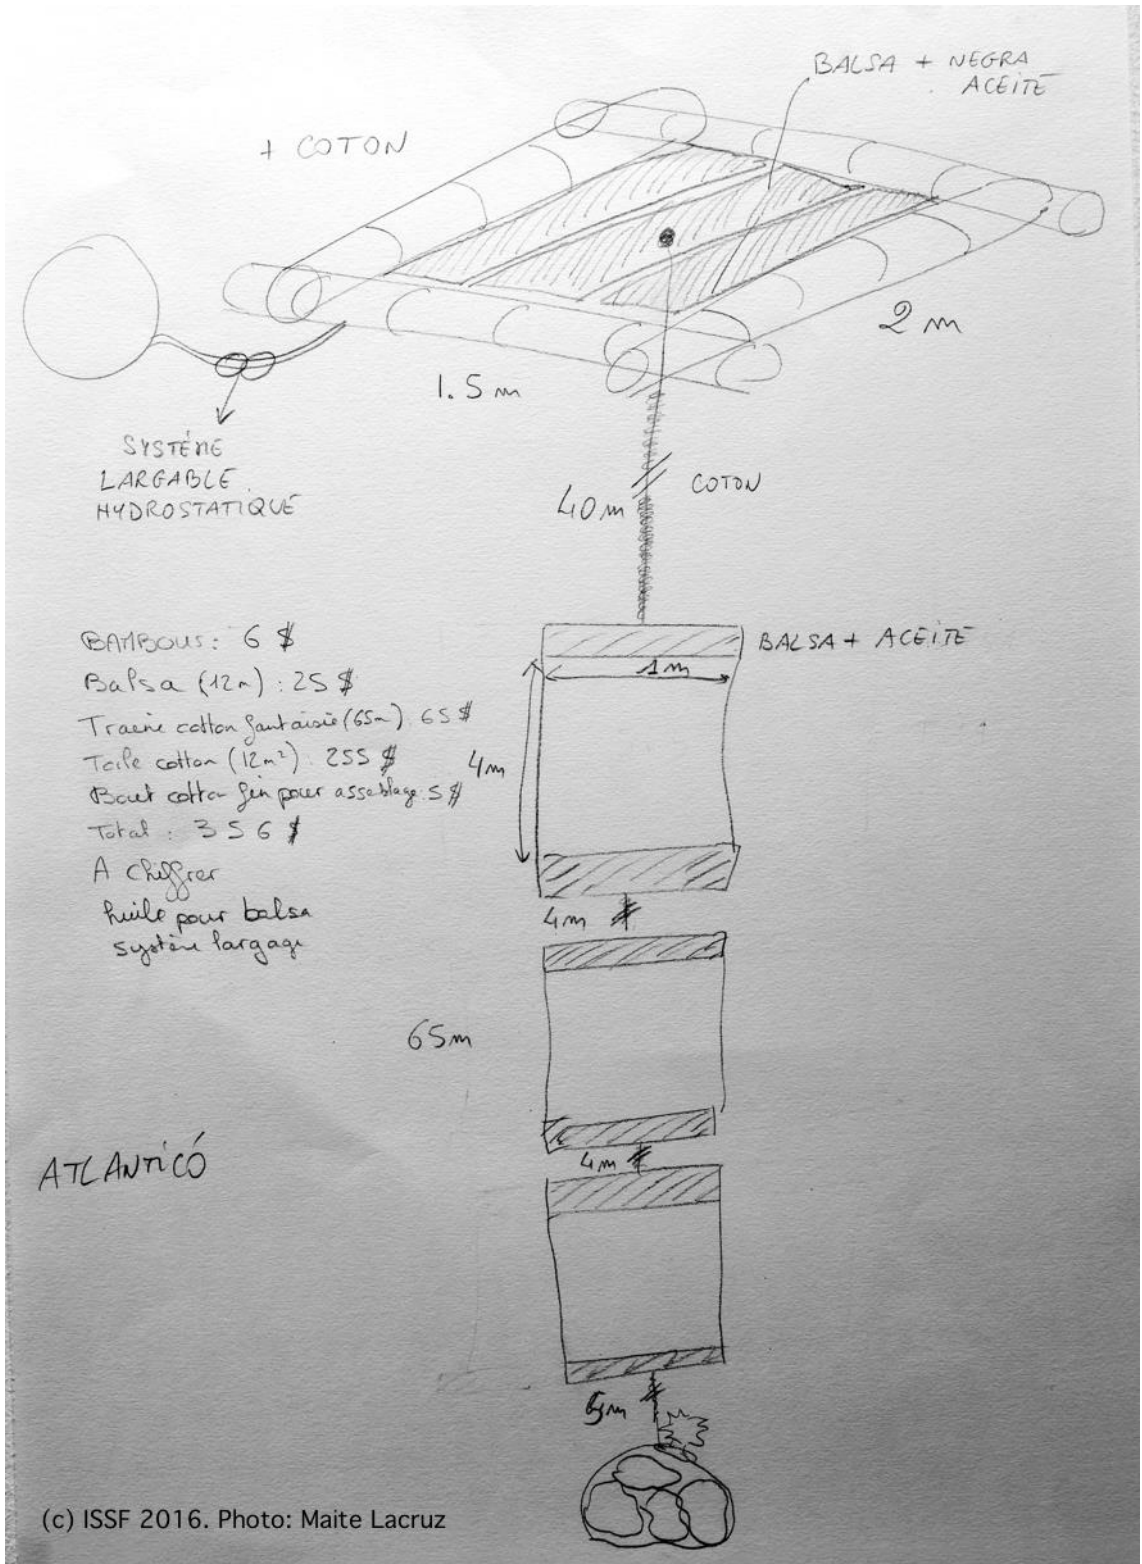 BALSA + NEGRA
ACEITE
+ COTON
2 m
1.5 m
SYSTÉME
LARGABLE
HYDROSTATIQUE
COTON
40m
BAMBOUS: 6 $
BALSA + ACEITE
1m
Balsa (12m) : 25 $
Traine cotton fantaisie (65m) 65 $
Toile cotton (12m²) : 255 $
4m
Bout cotton fin pour assemblage 5 $
Total : 356 $
A chiffrer
huile pour balsa
4m
système largage
65m
ATLANTICÓ
4m
(c) ISSF 2016. Photo: Maite Lacruz